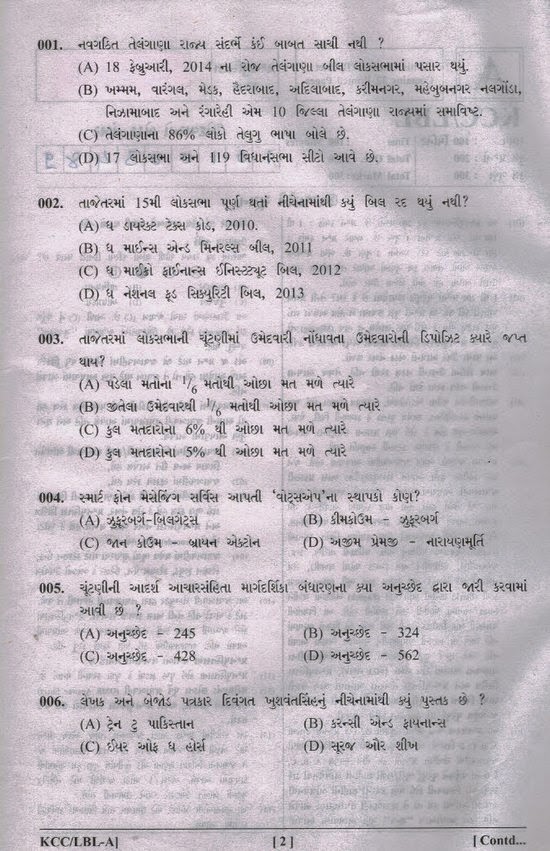 001. નવગઠિત તેલંગાણા રાજ્ય સંદર્ભે કંઈ બાબત સાચી નથી ?
(A) 18 ફેબ્રુઆરી, 2014 ના રોજ તેલંગાણા બીલ લોકસભામાં પસાર થયું.
(B) ખમ્મમ, વારંગલ, મેડક, હૈદરાબાદ, અદિલાબાદ, કરીમનગર, મહેબુબનગર નલગોંડા,
નિઝામાબાદ અને રંગારેહી એમ 10 જિલ્લા તેલંગાણા રાજ્યમાં સમાવિષ્ટ.
(C) તેલંગાણાના 86% લોકો તેલુગુ ભાષા બોલે છે.
(D) 17 લોકસભા અને 119 વિધાનસભા સીટો આવે છે.
002. તાજેતરમાં 15મી લોકસભા પૂર્ણ થતાં નીચેનામાંથી ક્યું બિલ રદ થયું નથી?
(A) ધ ડાયરેક્ટ ટેક્સ કોડ, 2010.
(B) ધ માઈન્સ એન્ડ મિનરલ્સ બીલ, 2011
(C) ધ માઈક્રો ફાઈનાન્સ ઈનિસ્ટટ્યુટ બિલ, 2012
(D) ધ નેશનલ ફૂડ સિક્યુરિટી બિલ, 2013
003. તાજેતરમાં લોકસભાની ચૂંટણીમાં ઉમેદવારી નોંધાવતા ઉમેદવારોની ડિપોઝિટ ક્યારે જપ્ત
થાય?
(A) પડેલા મતોના 1/6 મતોથી ઓછા મત મળે ત્યારે
(B) જીતેલા ઉમેદવારથી 1/6 મતોથી ઓછા મત મળે ત્યારે
(C) કુલ મતદારોના 6% થી ઓછા મત મળે ત્યારે
(D) કુલ મતદારોના 5% થી ઓછા મત મળે ત્યારે
004. સ્માર્ટ ફોન મેસેજિંગ સર્વિસ આપતી ‘વોટ્સએપ’ના સ્થાપકો કોણ?
(A) ઝુકરબર્ગ-બિલગેટ્સ (B) કીમકોઉમ - ઝુકરબર્ગ
(C) જાન કોઉમ - બ્રાયન એક્ટોન (D) અજીમ પ્રેમજી - નારાયણમૂર્તિ
005. ચૂંટણીની આદર્શ આચારસંહિતા માર્ગદર્શિકા બંધારણના ક્યા અનુચ્છેદ દ્વારા જારી કરવામાં
આવી છે ?
(A) અનુચ્છેદ - 245 (B) અનુચ્છેદ - 324
(C) અનુચ્છેદ - 428 (D) અનુચ્છેદ - 562
006. લેખક અને બેજોડ પત્રકાર દિવંગત ખુશવંતસિંહનું નીચેનામાંથી ક્યું પુસ્તક છે ?
(A) ટ્રેન ટુ પાકિસ્તાન (B) કરન્સી એન્ડ ફાયનાન્સ
(C) ઈયર ઓફ ધ હોર્સ (D) સૂરજ ઔર શીખ
KCC/LBL-A] [ 2 ] [ Contd...